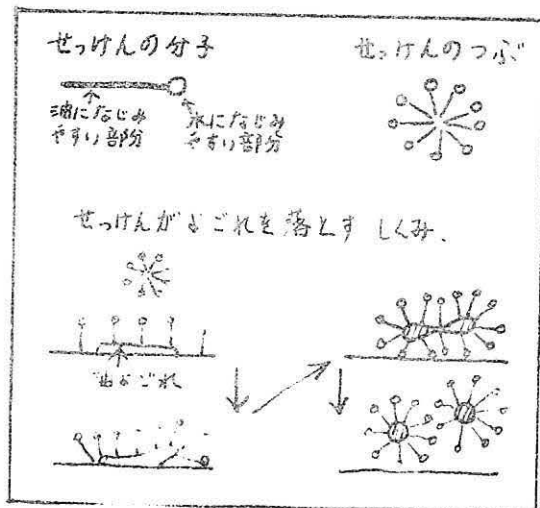 せっけんの分子
せっけんのつぶ
油になじみ
やすい部分
水になじみ
やすい部分
せっけんがよごれを落とす しくみ.
油よごれ